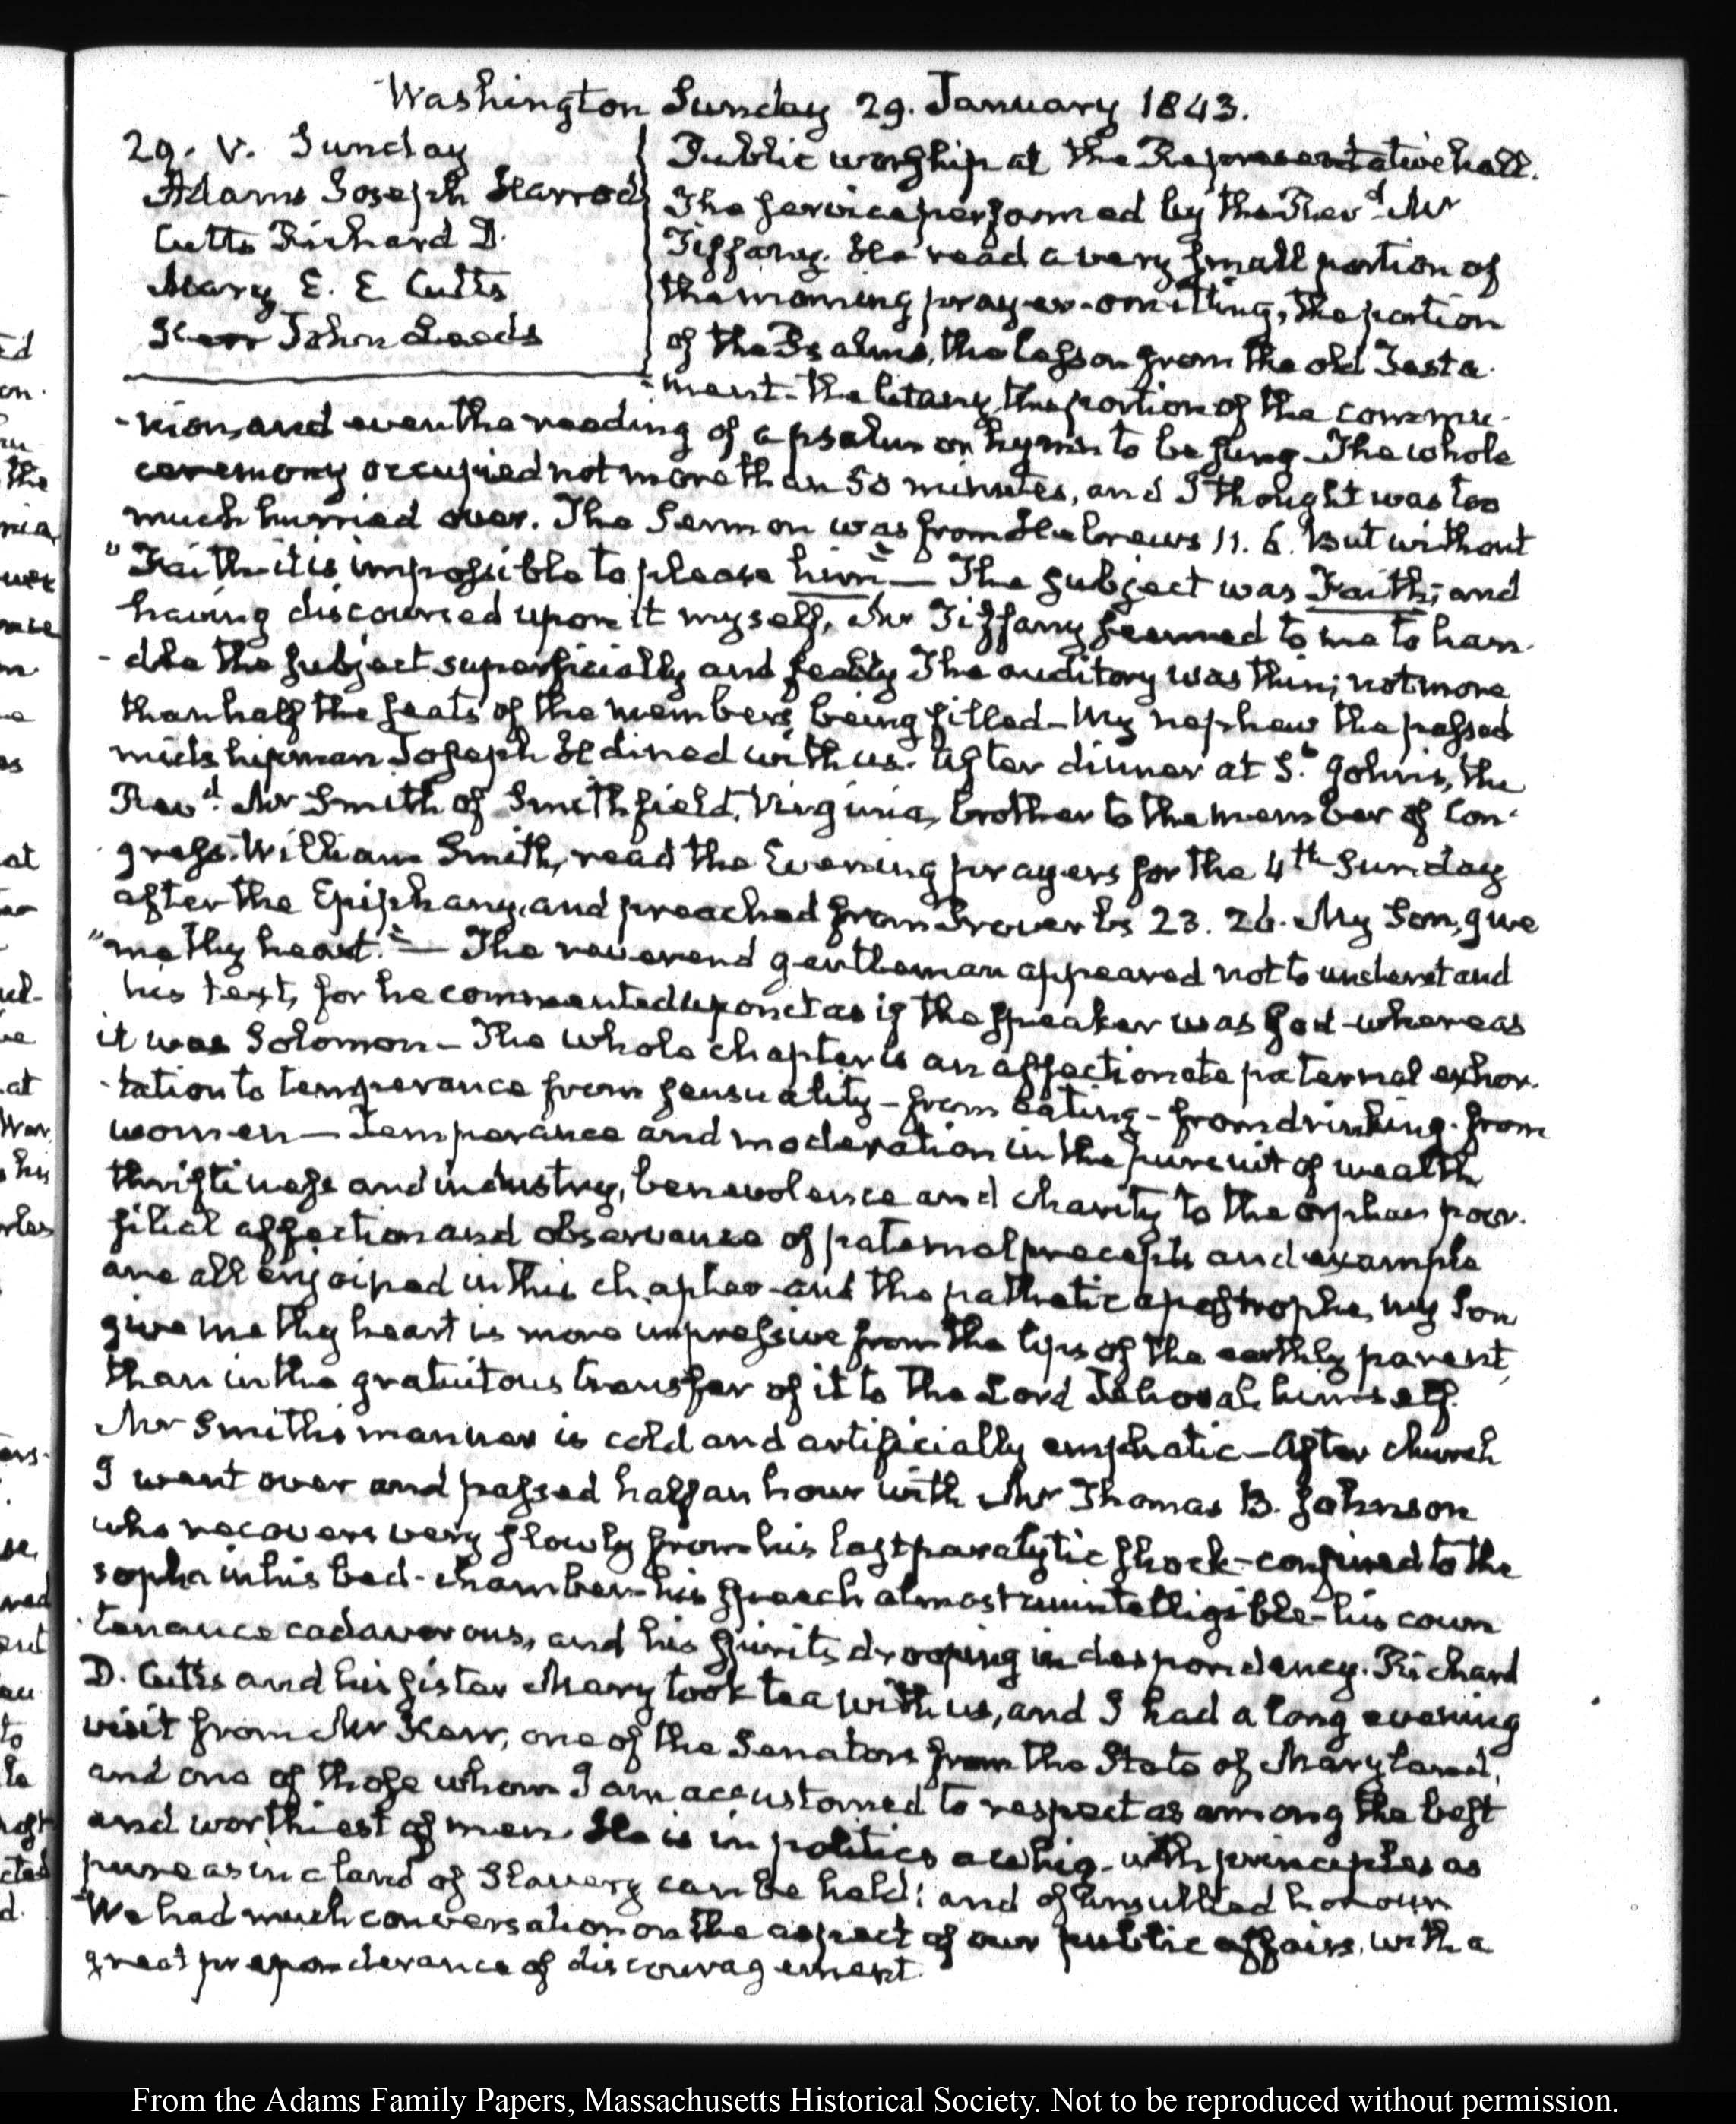 Washington Sunday 29. January 1843.
29. V. Sunday
Adams Joseph Harrod
Cutts Richard D.
Mary E. E Cutts
Kerr John Leeds
Public worship at the Representative hall.
The service performed by the Revd. Mr
Tiffany. He read a very small portion of
the morning prayer-omitting, the portion
of the Psalms, the lesson from the old Testa-
-ment-the litany, the portion of the commu-
-nion, and even the reading of a psalm or hymn to be sung-The whole
ceremony occupied not more than 50 minutes, and I thought was too
much hurried over. The Sermon was from Hebrews 11. 6. But without
"Faith it is impossible to please him"— The subject was Faith; and
having discoursed upon it myself, Mr Tiffany seemed to me to han-
-dle the subject superficially and The auditory was thin; not more
than half the seats of the members being filled-My nephew the passed
midshipman Joseph H dined with us. After dinner at St. John's, the
Revd. Mr Smith of Smithfield, Virginia, brother to the member of Con-
gress. William Smith, read the Evening prayers for the 4th Sunday
after the Epiphany, and preached from Proverbs 23. 26. My Son, give
"me thy heart."— The reverend gentleman appeared not to understand
his text, for he commented upon it as if the speaker was God-whereas
it was Solomon-The whole chapter is an affectionate paternal exhor-
-tation to temperance from sensuality-from eating-from drinking-from
women—Temperance and moderation in the pursuit of wealth
thriftiness and industry, benevolence and charity to the orphan poor.
filial affection and observance of paternal precepts and example
are all enjoined in this chapter-and the pathetic apostrophe, my Son
give me thy heart is more impressive from the lips of the earthly parent,
than in the gratuitous transfer of it to the Lord Jehovah himself.
Mr Smith's manner is cold and artificially emphatic-After church
I went over and passed half an hour with Mr Thomas B. Johnson
who recovers very slowly from his last paralytic shock-confined to the
sopha in his bed-chamber-his speech almost unintelligible-his coun
tenance cadaverous, and his spirits drooping in despondency. Richard
D. Cutts and his sister Mary took tea with us, and I had a long evening
visit from Mr Kerr, one of the Senators from the State of Maryland,
and one of those whom I am accustomed to respect as among the best
and worthiest of men. He is in politics a whig-with principles as
pure as in a land of Slavery can be held; and of unsullied honour
We had much conversation on the aspect of our public affairs, with a
great preponderance of discouragement.
From the Adams Family Papers, Massachusetts Historical Society. Not to be reproduced without permission.